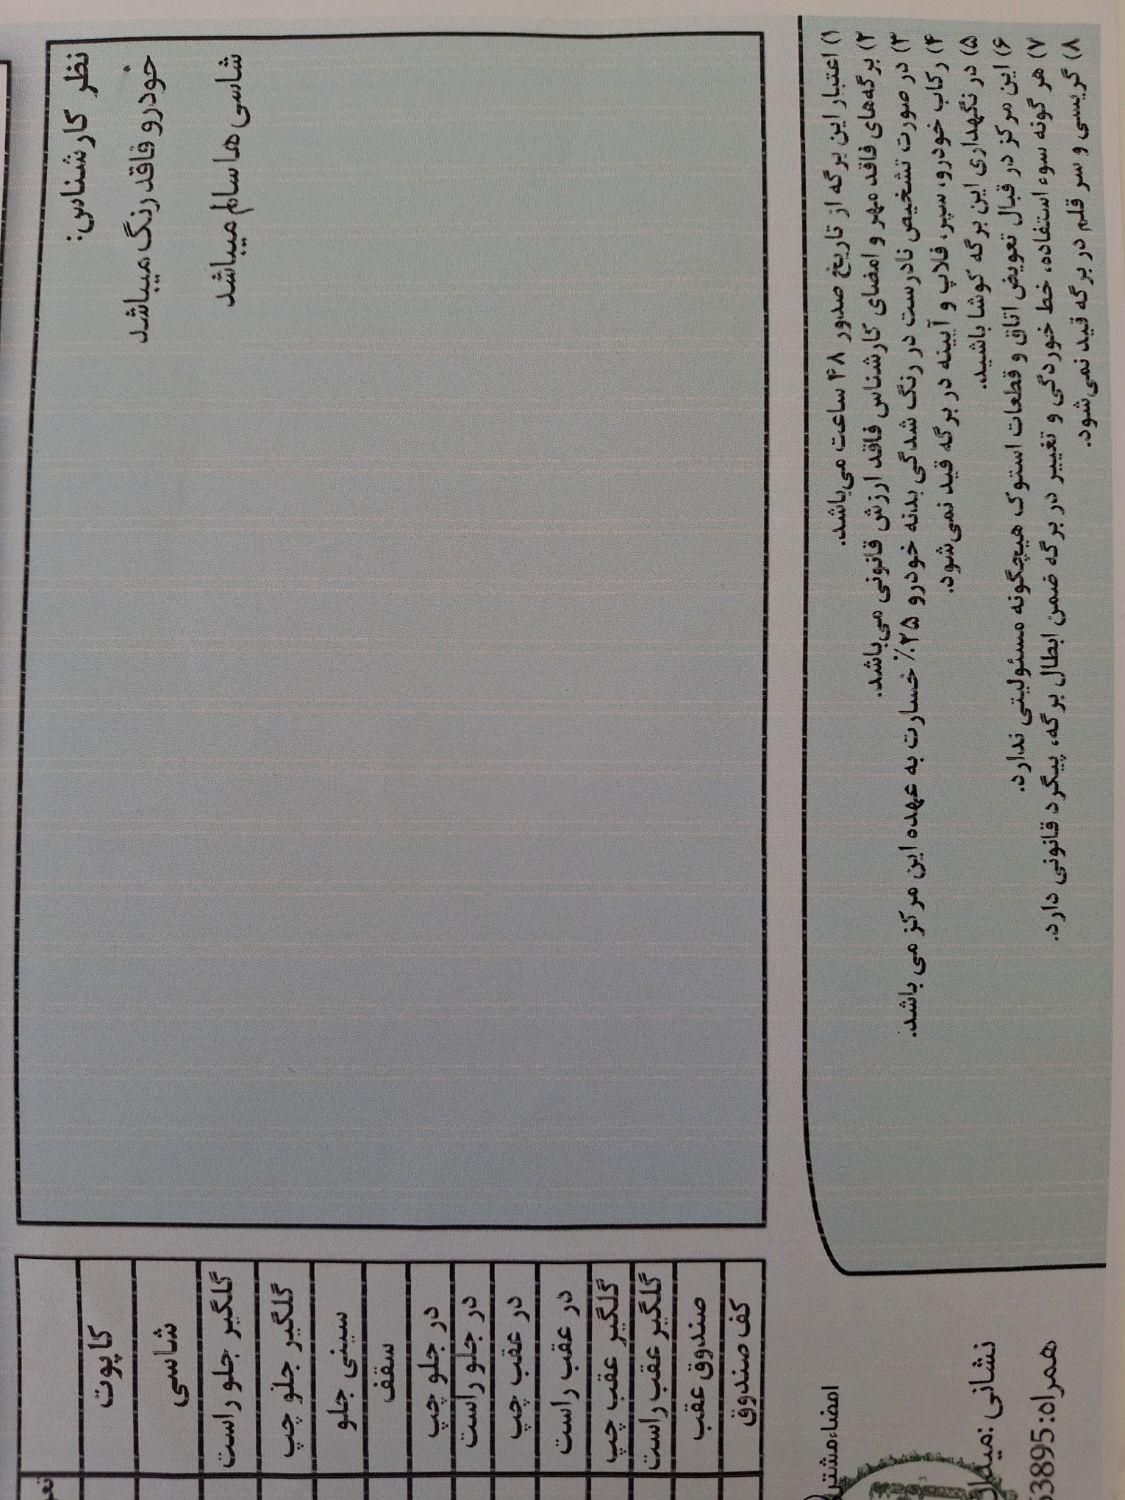 نظر کارشناس:
خودرو فاقد رنگ میباشد
شاسی ها سالم میباشد
کاپوت
شاسی
گلگیر جلو راست
گلگیر جلو چپ
سینی جلو
سقف
در جلو چپ
در جلو راست
در عقب چپ
در عقب راست
گلگیر عقب چپ
گلگیر عقب راست
صندوق عقب
کف صندوق
۱) اعتبار این برگه از تاریخ صدور ۴۸ ساعت می‌باشد.
۲) برگه‌های فاقد مهر و امضای کارشناس فاقد ارزش قانونی می‌باشد.
۳) در صورت تشخیص نادرست در رنگ شدگی بدنه خودرو ۲۵٪ خسارت به عهده این مرکز می باشد.
۴) رکاب خودرو، سپر، فلاپ و آیینه در برگه قید نمی‌شود.
۵) در نگهداری این برگه کوشا باشید.
۶) این مرکز در قبال تعویض اتاق و قطعات استوک هیچگونه مسئولیتی ندارد.
۷) هر گونه سوء استفاده، خط خوردگی و تغییر در برگه ضمن ابطال برگه، پیگرد قانونی دارد.
۸) گریسی و سر قلم در برگه قید نمی‌شود.
امضاء مشتر
نشانی :
همراه: 63895